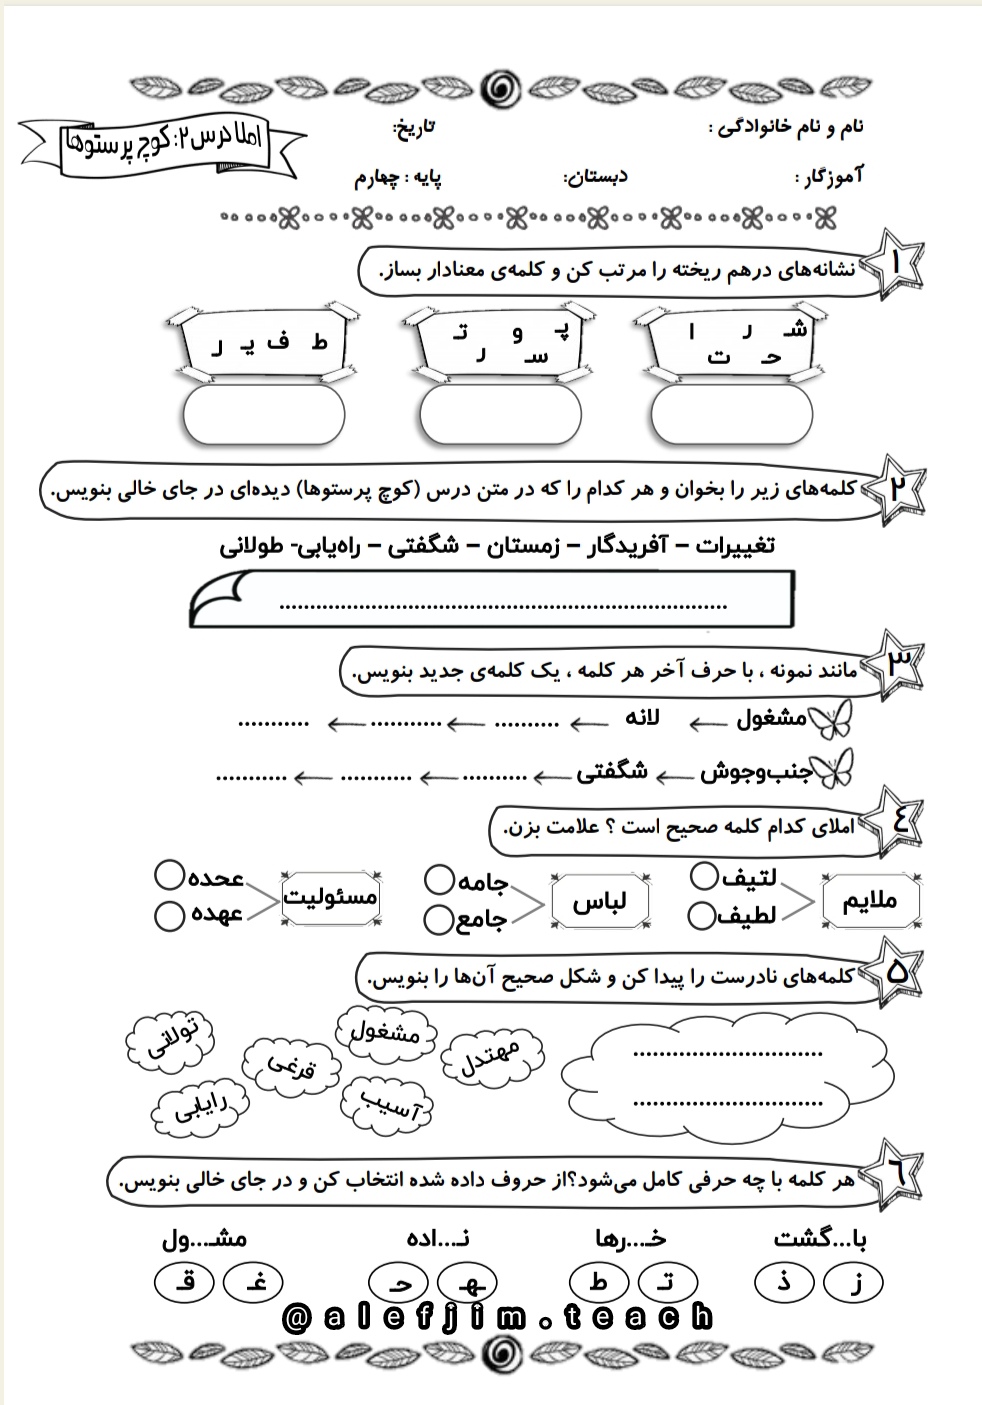 املا درس ۲: کوچ پرستوها
نام و نام خانوادگی : تاریخ:
آموزگار : دبستان: پایه : چهارم
۱ نشانه‌های درهم ریخته را مرتب کن و کلمه‌ی معنادار بساز.
شـ ر ا پـ و تـ ط ف یـ ر
حـ ت سـ ر
۲ کلمه‌های زیر را بخوان و هر کدام را که در متن درس (کوچ پرستوها) دیده‌ای در جای خالی بنویس.
تغییرات – آفریدگار – زمستان – شگفتی – راه‌یابی- طولانی
...........................................................................
۳ مانند نمونه ، با حرف آخر هر کلمه ، یک کلمه‌ی جدید بنویس.
مشغول ← لانه ← ........... ← ............ ← ............
جنب‌وجوش ← شگفتی ← ........... ← ............ ← ............
٤ املای کدام کلمه صحیح است ؟ علامت بزن.
ملایم لتیف لباس جامه مسئولیت عحده
لطیف جامع عهده
۵ کلمه‌های نادرست را پیدا کن و شکل صحیح آن‌ها را بنویس.
................................
................................
مهتدل مشغول قرغی تولانی
آسیب رایابی
٦ هر کلمه با چه حرفی کامل می‌شود؟از حروف داده شده انتخاب کن و در جای خالی بنویس.
با...گشت خـ...رها نـ...اده مشـ...ول
ز ذ تـ ط ـهـ حـ غـ قـ
@alefjim.teach